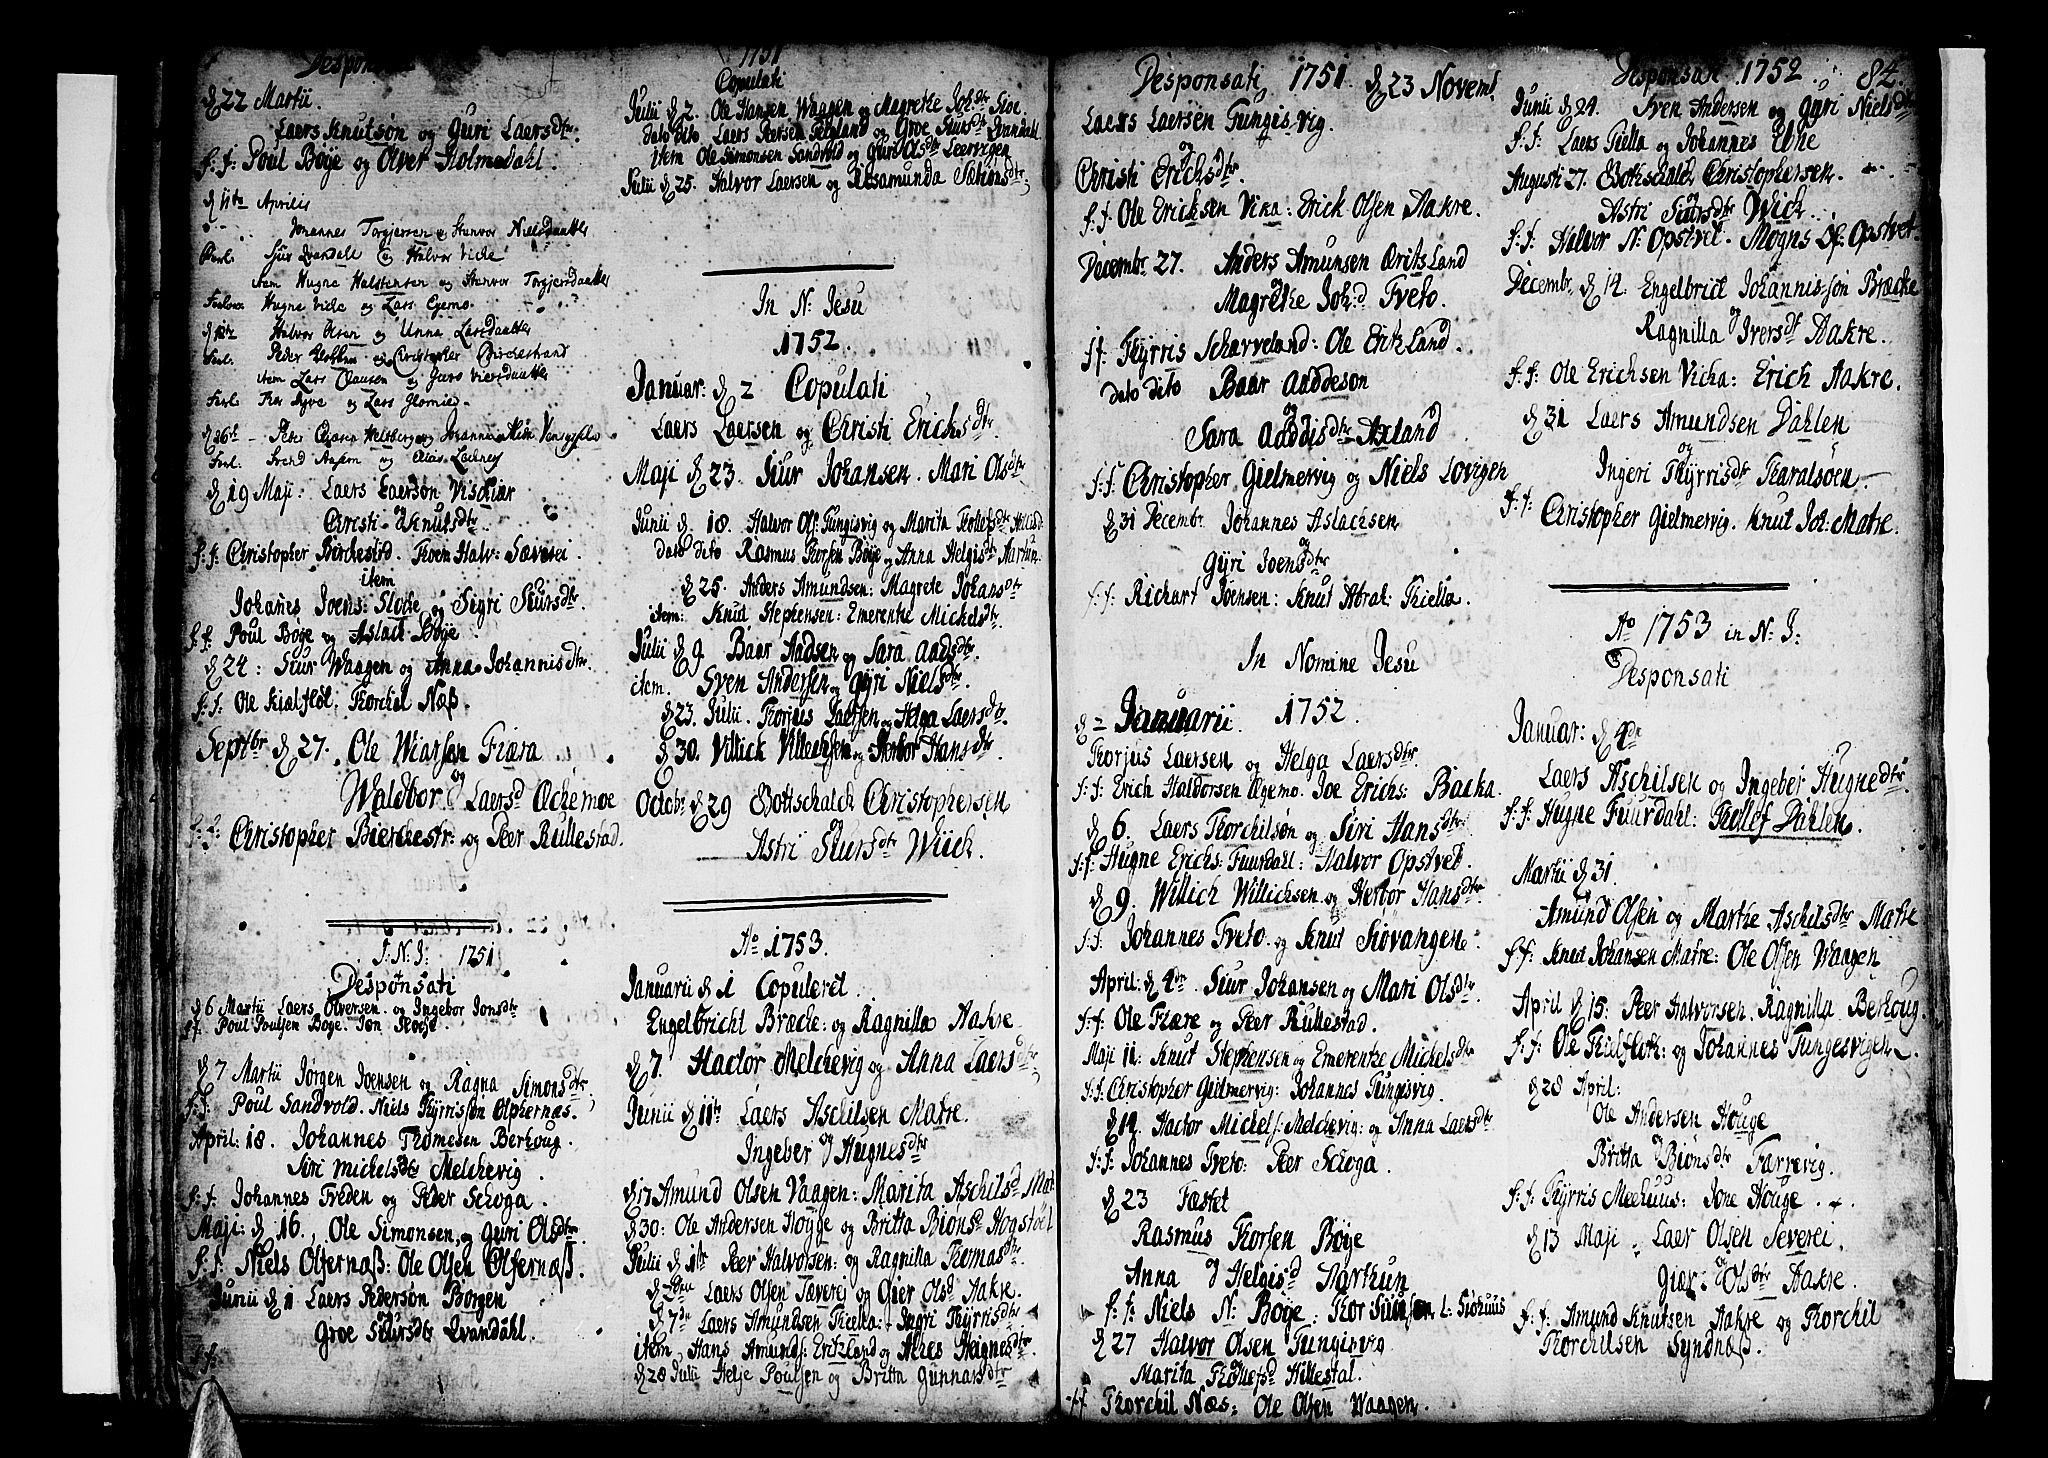 Desponsati
d 22 Martii.
Laers Knutsøn og Guri Laersdtr
f: f: Poul Bøye og Olver Holmedahl.
d 11te Aprilis
Johannes Torgiersen og Stenvor Nielsdaatter
Forl. Siur Qvandall og Halvor Vicke
Item Hugne Halstensen og Stenvor Torgiersdaatter
Forlov. Hugne Vicke og Lars Egemo
Halvor Olsen og Unna Larsdaatter
Forl. Peder og Christopher Birchestrand
item Lars Clausen og Guro
Forl. Thor og Lars
d 26te Peter og Johanna
Forl. Svend og
d 19 Maji: Laers Laersøn Vischiær
Christi og Knutsdtr.
f: f: Christopher Birchestrd. Thoem Halv: Sævarei
item
Johanes Joens: Slotte og Sigri Siursdtr
f: f: Poul Bøye og Aslach Bøye
d 24: Siur Waagen og Anna Johannisdtr.
f: f: Ole Kialfløt. Thorchel Næs.
Septbr d 27. Ole Wiarsøn Fiæra
og
Waldbor Laersd Ockemoe
f: f: Christopher Bierchestr: og Peer Rullestad.
J: N: J: 1751
Desponsati
d 6 Martii Laers Olversen og Ingebor Jonsdtr
f: f. Poul Poulsen Boye. Jon
d 7 Martii Jørgen Joensen og Ragna Simonsdtr.
f: f: Poul Sandvold. Niels Thyrrissøn Olphernæs.
April: 18. Johannes Thomesen Berhoug.
Siri Michelsdtr Melchevig
f: f: Johannes Treden og Peder Schoga.
Maji: d 16. Ole Simonsen, og Guri Olsdtr
f: f: Niels Olfernæs: Ole Olsen Olfernæs.
Junii d 1 Laers Pedersøn Borgen
Groe Siursdtr Qvandahl.
f: f:
1751
Copulati
Julii d 2. Ole Hansen Waagen og Magrethe Joh:dtr
dato dito Laers Peersen og Groe Siursdtr Qvandahl
item Ole Simonsen Sandvold og Guri Olsdtr Leervigen
Julii d 25. Halvor Laersen og Rosamunda
In N: Jesu
1752.
Januar: d 2 Copulati
Laers Laersen og Christi Erichsdtr
Maji d 23. Siur Johansen. Mari Olsdtr
Junii d. 18. Halvor Ols: Tungisvig og Marita Thollefsdtr
dato dito Rasmus Thorsen Bøye og Anna Helgisdtr Aarhun
d 25. Anders Amundsen: Magrete Johansdtr
item: Knud Stephensen: Emerentze Mickelsdtr.
Julii d 9 Baar Aadsen og Sara Aadsdtr.
item. Sven Andersen og Gyri Nielsdtr
d 23. Julii. Thorjus Laersen og Helga Laersdtr.
d 30. Villick Villechsen og Herbor Hansdtr.
Octobr d 29 Gottschalck Christophersen
og
Astri Siursdtr Wiick.
Ao 1753.
Januarii d 1 Copuleret
Engelbricht Bræcke: og Ragnilla Aakre.
d 7. Hactor Melchevig og Anna Laersdtr
Junii d 11te Laers Aschilsen Matre.
og
Ingeber Hugnesdtr
d 17 Amund Olsen Vaagen: Marita Aschilsd Mat
d 30: Ole Andersen Høyge og Britta Biønsd
Julii d 1te Peer Halvorsen: og Ragnilla Thomasdtr.
Laers Olsen Tæverei og Gier Olsd Aakre.
d 7de Laers Amundsen: Ingri Thyrrisdtr
item Hans Amunds: Eritzland og
d 28 Julii Helje Poulsen og Britta Gunnarsdtr
Desponsati 1751. d 23 Novemb.
Laers Laersen Tungisvig.
og
Christi Erichsdtr.
f: f: Ole Ericksen Vika: Erick Olsen Aakre.
Decembr 27. Anders Amunsen Eritsland
og
Magrethe Joh:d Tveto.
f: f: Thyrris Scharveland: Ole Eritzland.
dato dito Baar Aaddeson
og
Sara Aaddisdtr Axland
f: f: Christopher Gielmervig og Niels Lovigen
d 31 Decembr Johannes Aslachsen
og
Gÿri Joensdtr
f: f: Richart Joensen: Knut Abrah: Thiella.
In Nomine Jesu
d 2 Januarii 1752.
Thorjus Laersen og Helga Laersdtr.
f: f: Erich Haldorsen Egemo. Joe Erichs: Backa.
d 6. Laers Thorchilsøn og Siri Hansdtr
f: f: Hugne Erichs: Fuurdahl: Halvor Opstvet.
d 9. Willich Willichsen og Herbor Hansdtr.
f: f: Johannes Tveto. og Knut Siøvangen.
April: d 4de. Siur Johansen og Mari Olsdtr
f: f: Ole Fiære og Peer Rullestad.
Maji 11: Knut Stephensen og Emerentze Michelsdtr
f: f: Christopher Gielmervig: Johannes Tungisvig
d 14 Hactor Michels: Melchevig: og Anna Laersdtr
f: f: Johannes Tveto: Peer Schoga.
d 23 Fæstet
Rasmus Thorsen Bøye
og
Anna Helgisd Aarhun
f: f: Niels N: Boye: Thor
d 27 Halvor Olsen Tungisvig
og
Marita Thollefsd Hillestal.
f: f: Thorchil Næs: Ole Olsen Waagen
Desponsati 1752. 84.
Junii d 24. Sven Andersen og Gyri Nielsdtr
f: f: Laers Thiella og Johannes Ebne
Augusti 27. Gothschalck Christophersen.
og
Astri Siursdtr Wick.
f: f: Halvor N: Opstvet. Mogns Ol: Opstvet.
Decembr. d 14. Engelbrict Johannissøn Bræcke
og
Ragnilla Iversdtr Aakre.
f: f: Ole Erichsen Vicka: Erich Aakre.
d 31 Laers Amundsen Dahlen
og
Ingeri Thyrrisdtr Tharalsøen.
f: f: Christopher Gielmervig. Knut Joh: Matre.
Ao 1753 in N: J:
Desponsati
Januar: d 4de
Laers Aschilsen og Ingeber Hugnedtr
f: f: Hugne Fuurdahl: Thollef Dahlen.
Martii d 31.
Amund Olsen og Marthe Aschilsdtr Matre
f: f: Knud Johansen Matre: Ole Olsen Waagen
April d 15: Peer Halvorsen. Ragnilla Berhoug.
f: f: Ole Thielfloth: og Johannes Tungesvigen.
d 28 April:
Ole Andersen Houge
og
Britta Biønsdtr Farrevig.
f: f: Thyrris Meehuus: Jone Houge.
d 13 Maji. Laer Olsen Severei.
og
Gier Olsdtr Aakre.
f: f: Amund Knutsen Aakre og Thorchil
Thorchilsen Syndnæs.